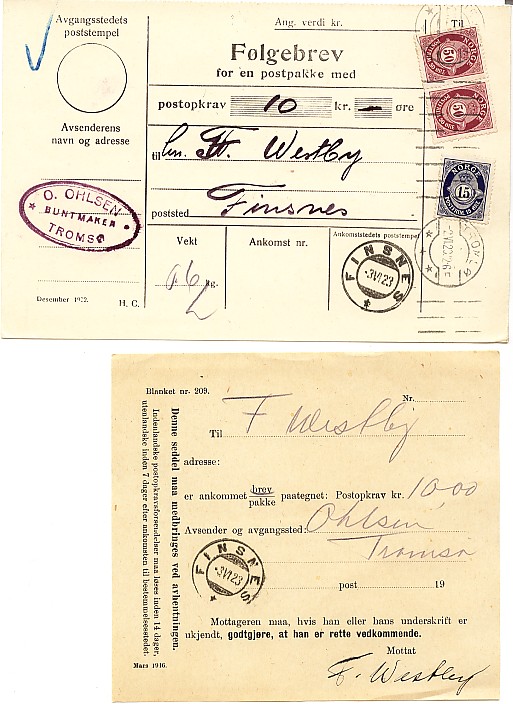 Avgangsstedets
poststempel
Ang. verdi kr.
Til
Følgebrev
for en postpakke med
postopkrav 10 kr. — øre
Avsenderens
navn og adresse
til hr. F. Westby
poststed Finsnes
O. OHLSEN
BUNTMAKER
TROMSØ
Vekt
Ankomst nr.
Ankomststedets poststempel
0.6 kg.
FINSNES
-3VI23
Desember 1922.
H. C.
NORGE
50
NORGE
50
NORGE
15
TROMSØ
Blanket nr. 209.
Nr.
Til F Westby
adresse:
er ankommet brev
pakke paategnet: Postopkrav kr. 10,00
Avsender og avgangssted: Ohlsen,
Tromsø
FINSNES
-3VI23
post 19
Mottageren maa, hvis han eller hans underskrift er
ukjendt, godtgjøre, at han er rette vedkommende.
Mottat
F. Westby
Denne seddel maa medbringes ved avhentningen.
Indenlandske postopkravsforsendelser maa løses inden 14 dager,
utenlandske inden 7 dager efter ankomsten til bestemmelsesstedet.
Mars 1916.